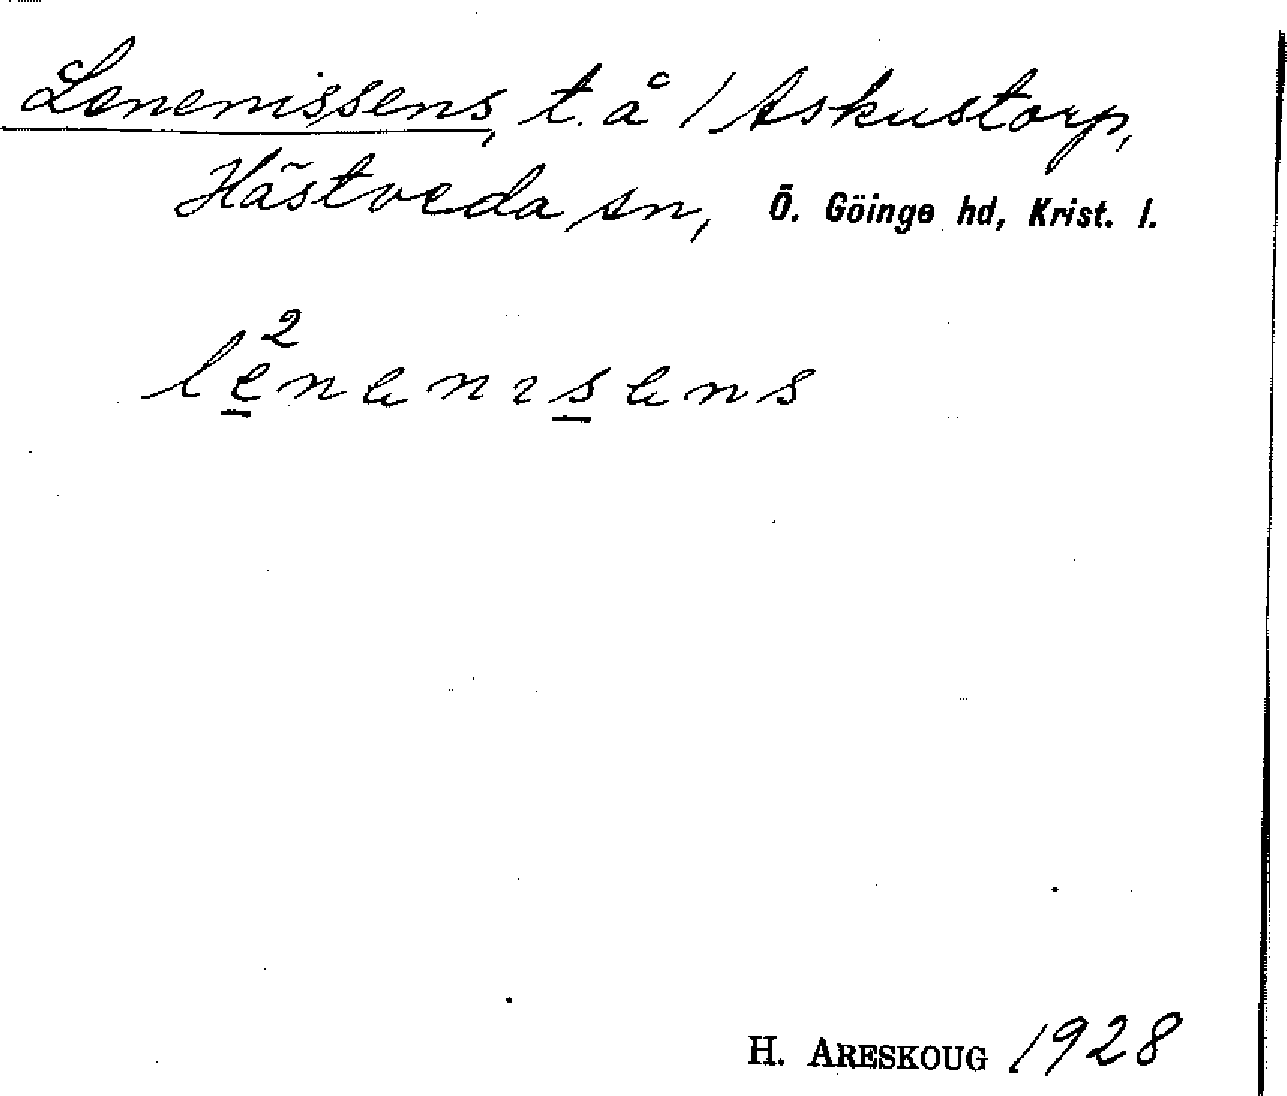 Lenenissens, t. å 1 Askustorp,
Hästveda sn, Ö. Göinge hd, Krist. l.
le̲²nenise̲ns
H. ARESKOUG 1928